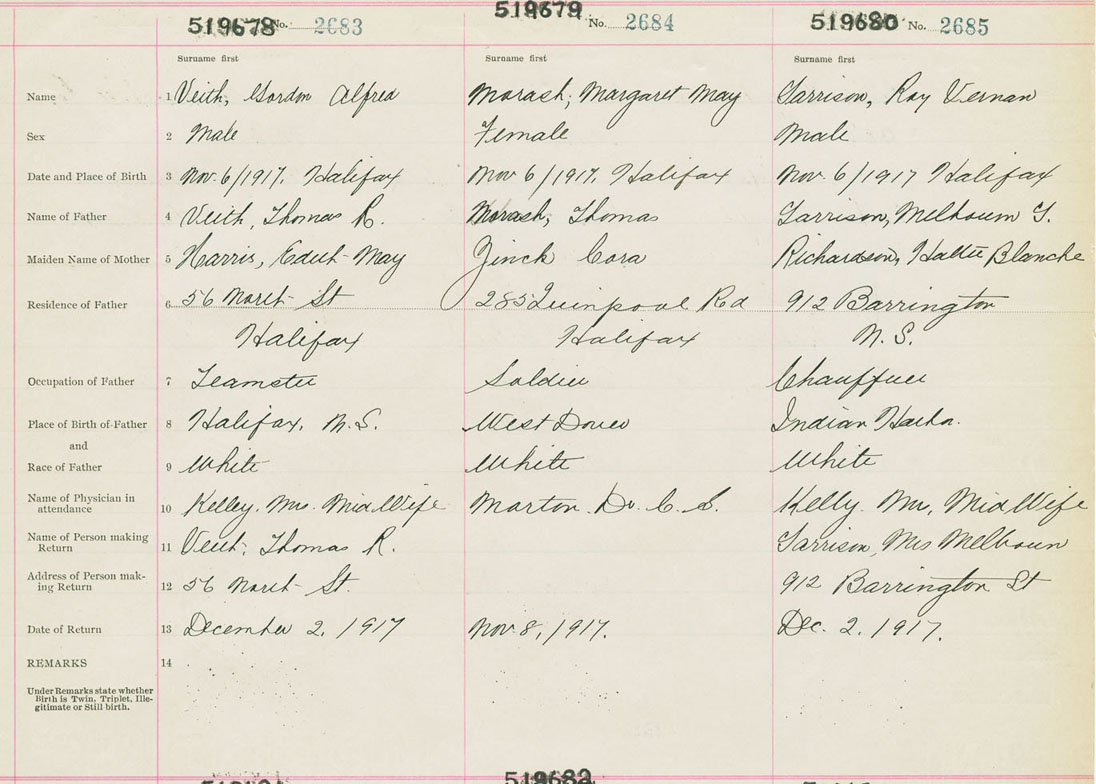 519678 No. 2683 519679 No. 2684 519680 No. 2685
Surname first Surname first Surname first
Name 1 Veith, Gordon Alfred Morash, Margaret May Garrison, Roy Vernan
Sex 2 Male Female Male
Date and Place of Birth 3 Nov. 6/1917. Halifax Nov 6/1917. Halifax Nov 6/1917 Halifax
Name of Father 4 Veith, Thomas R. Morash, Thomas Garrison, Melbourn
Maiden Name of Mother 5 Harris, Edith May Zinck Cora Richardson, Hattie Blanche
Residence of Father 6 56 St 285 Quinpool Rd 912 Barrington
Halifax Halifax N.S.
Occupation of Father 7 Teamster Soldier Chauffuer
Place of Birth of Father 8 Halifax, N.S. West Dover Indian Harbor.
and
Race of Father 9 White White White
Name of Physician in
attendance 10 Kelley. Mrs. MidWife Morton. Dr. C. S. Kelly. Mrs, MidWife
Name of Person making
Return 11 Veith, Thomas R. Garrison, Mrs Melbourn
Address of Person mak-
ing Return 12 56 St. 912 Barrington St
Date of Return 13 December 2, 1917 Nov 8, 1917. Dec. 2. 1917.
REMARKS 14
Under Remarks state whether
Birth is Twin, Triplet, Ille-
gitimate or Still birth.
519682